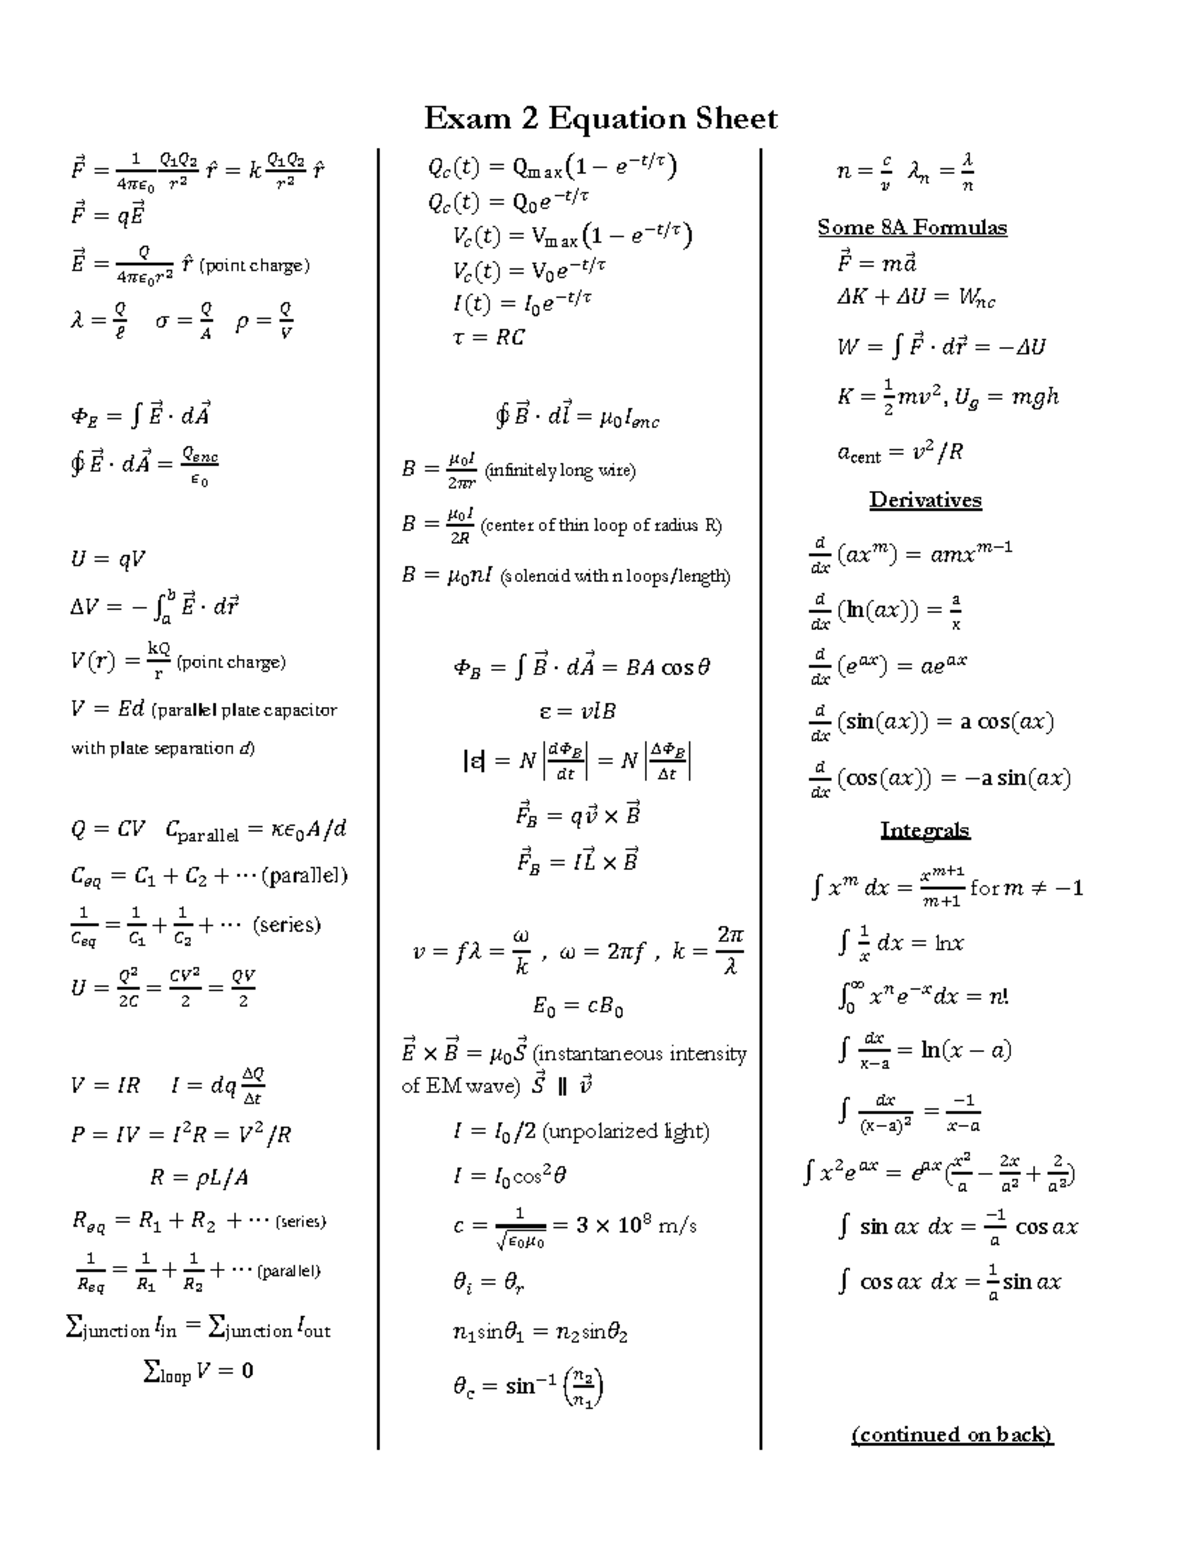 Exam 2 Equation Sheet
F⃗ = 1/(4πϵ₀) Q₁Q₂/r² r̂ = k Q₁Q₂/r² r̂
F⃗ = qE⃗
E⃗ = Q/(4πϵ₀r²) r̂ (point charge)
λ = Q/ℓ σ = Q/A ρ = Q/V
Φ_E = ∫ E⃗ · dA⃗
∮ E⃗ · dA⃗ = Q_enc/ϵ₀
U = qV
ΔV = − ∫_a^b E⃗ · dr⃗
V(r) = kQ/r (point charge)
V = Ed (parallel plate capacitor
with plate separation d)
Q = CV C_parallel = κϵ₀A/d
C_eq = C₁ + C₂ + ⋯ (parallel)
1/C_eq = 1/C₁ + 1/C₂ + ⋯ (series)
U = Q²/2C = CV²/2 = QV/2
V = IR I = dq ΔQ/Δt
P = IV = I²R = V²/R
R = ρL/A
R_eq = R₁ + R₂ + ⋯ (series)
1/R_eq = 1/R₁ + 1/R₂ + ⋯ (parallel)
∑_junction I_in = ∑_junction I_out
∑_loop V = 0
Q_c(t) = Q_max(1 − e^(−t/τ))
Q_c(t) = Q₀e^(−t/τ)
V_c(t) = V_max(1 − e^(−t/τ))
V_c(t) = V₀e^(−t/τ)
I(t) = I₀e^(−t/τ)
τ = RC
∮ B⃗ · dl⃗ = μ₀I_enc
B = μ₀I/2πr (infinitely long wire)
B = μ₀I/2R (center of thin loop of radius R)
B = μ₀nI (solenoid with n loops/length)
Φ_B = ∫ B⃗ · dA⃗ = BA cos θ
ε = vlB
|ε| = N |dΦ_B/dt| = N |ΔΦ_B/Δt|
F⃗_B = qv⃗ × B⃗
F⃗_B = IL⃗ × B⃗
v = fλ = ω/k , ω = 2πf , k = 2π/λ
E₀ = cB₀
E⃗ × B⃗ = μ₀S⃗ (instantaneous intensity
of EM wave) S⃗ ∥ v⃗
I = I₀/2 (unpolarized light)
I = I₀cos²θ
c = 1/√(ϵ₀μ₀) = 3 × 10⁸ m/s
θ_i = θ_r
n₁sinθ₁ = n₂sinθ₂
θ_c = sin⁻¹ (n₂/n₁)
n = c/v λ_n = λ/n
Some 8A Formulas
F⃗ = ma⃗
ΔK + ΔU = W_nc
W = ∫ F⃗ · dr⃗ = −ΔU
K = 1/2 mv², U_g = mgh
a_cent = v²/R
Derivatives
d/dx (ax^m) = amx^(m−1)
d/dx (ln(ax)) = a/x
d/dx (e^(ax)) = ae^(ax)
d/dx (sin(ax)) = a cos(ax)
d/dx (cos(ax)) = −a sin(ax)
Integrals
∫ x^m dx = x^(m+1)/(m+1) for m ≠ −1
∫ 1/x dx = lnx
∫₀^∞ x^n e^(−x) dx = n!
∫ dx/(x−a) = ln(x − a)
∫ dx/(x−a)² = −1/(x−a)
∫ x²e^(ax) = e^(ax)(x²/a − 2x/a² + 2/a³)
∫ sin ax dx = −1/a cos ax
∫ cos ax dx = 1/a sin ax
(continued on back)